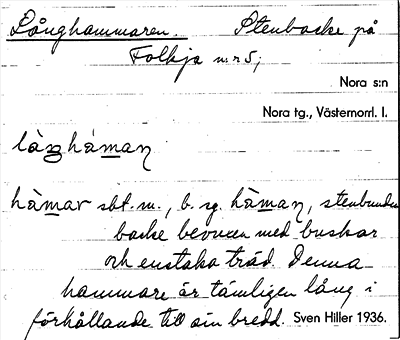 Långhammaren. Stenbacke på
Folkja nr 5;
Nora s:n
Nora tg., Västernorrl. l.
làŋhàman
hàmar sbt. m., b. sg. hàman, stenbunden
backe bevuxen med buskar
och enstaka träd. Denna
hammare är tämligen lång i
förhållande till sin bredd. Sven Hiller 1936.